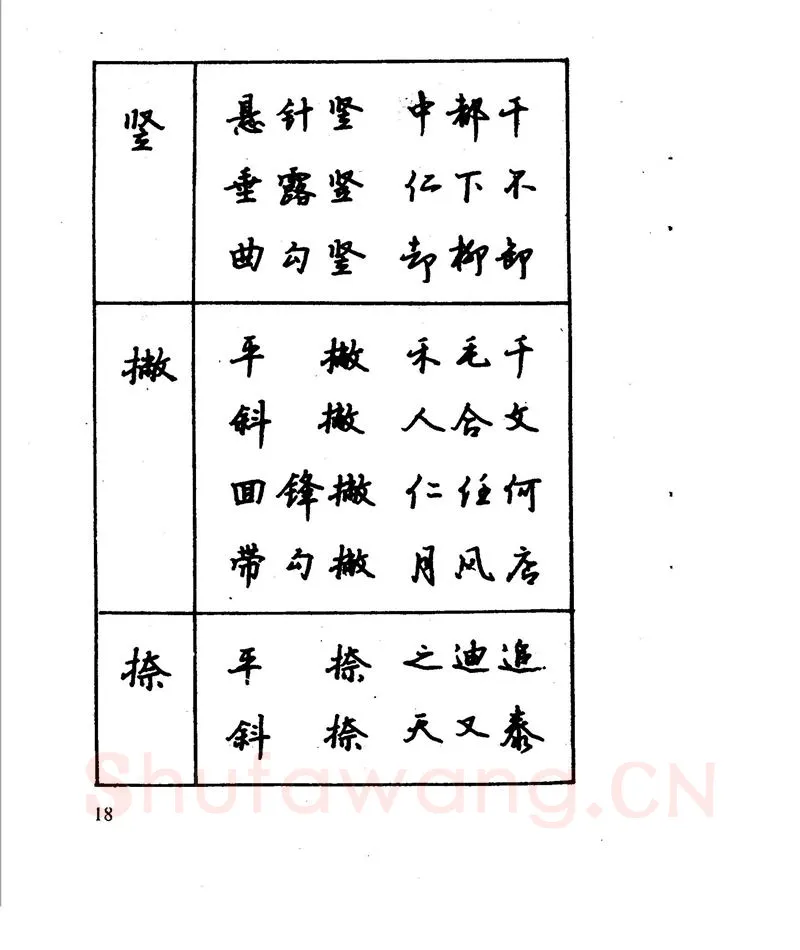 竖
悬针竖 中都干
垂露竖 仁下不
曲勾竖 却柳卸
撇
平撇 禾毛千
斜撇 人合文
回锋撇 仁任何
带勾撇 月风店
捺
平捺 之迪追
斜捺 天又泰
Shufawang.CN
18